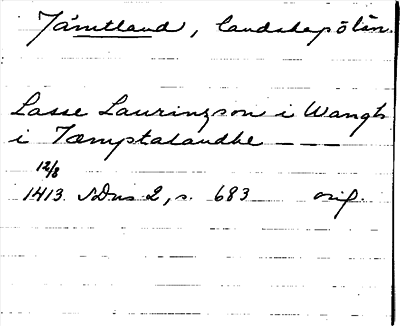 Jämtland, landskap o län.
Lasse Laurinzson i Wangh
i Jæmptalandhe - - -
12/8
1413 SDns 2, s. 683 orig.